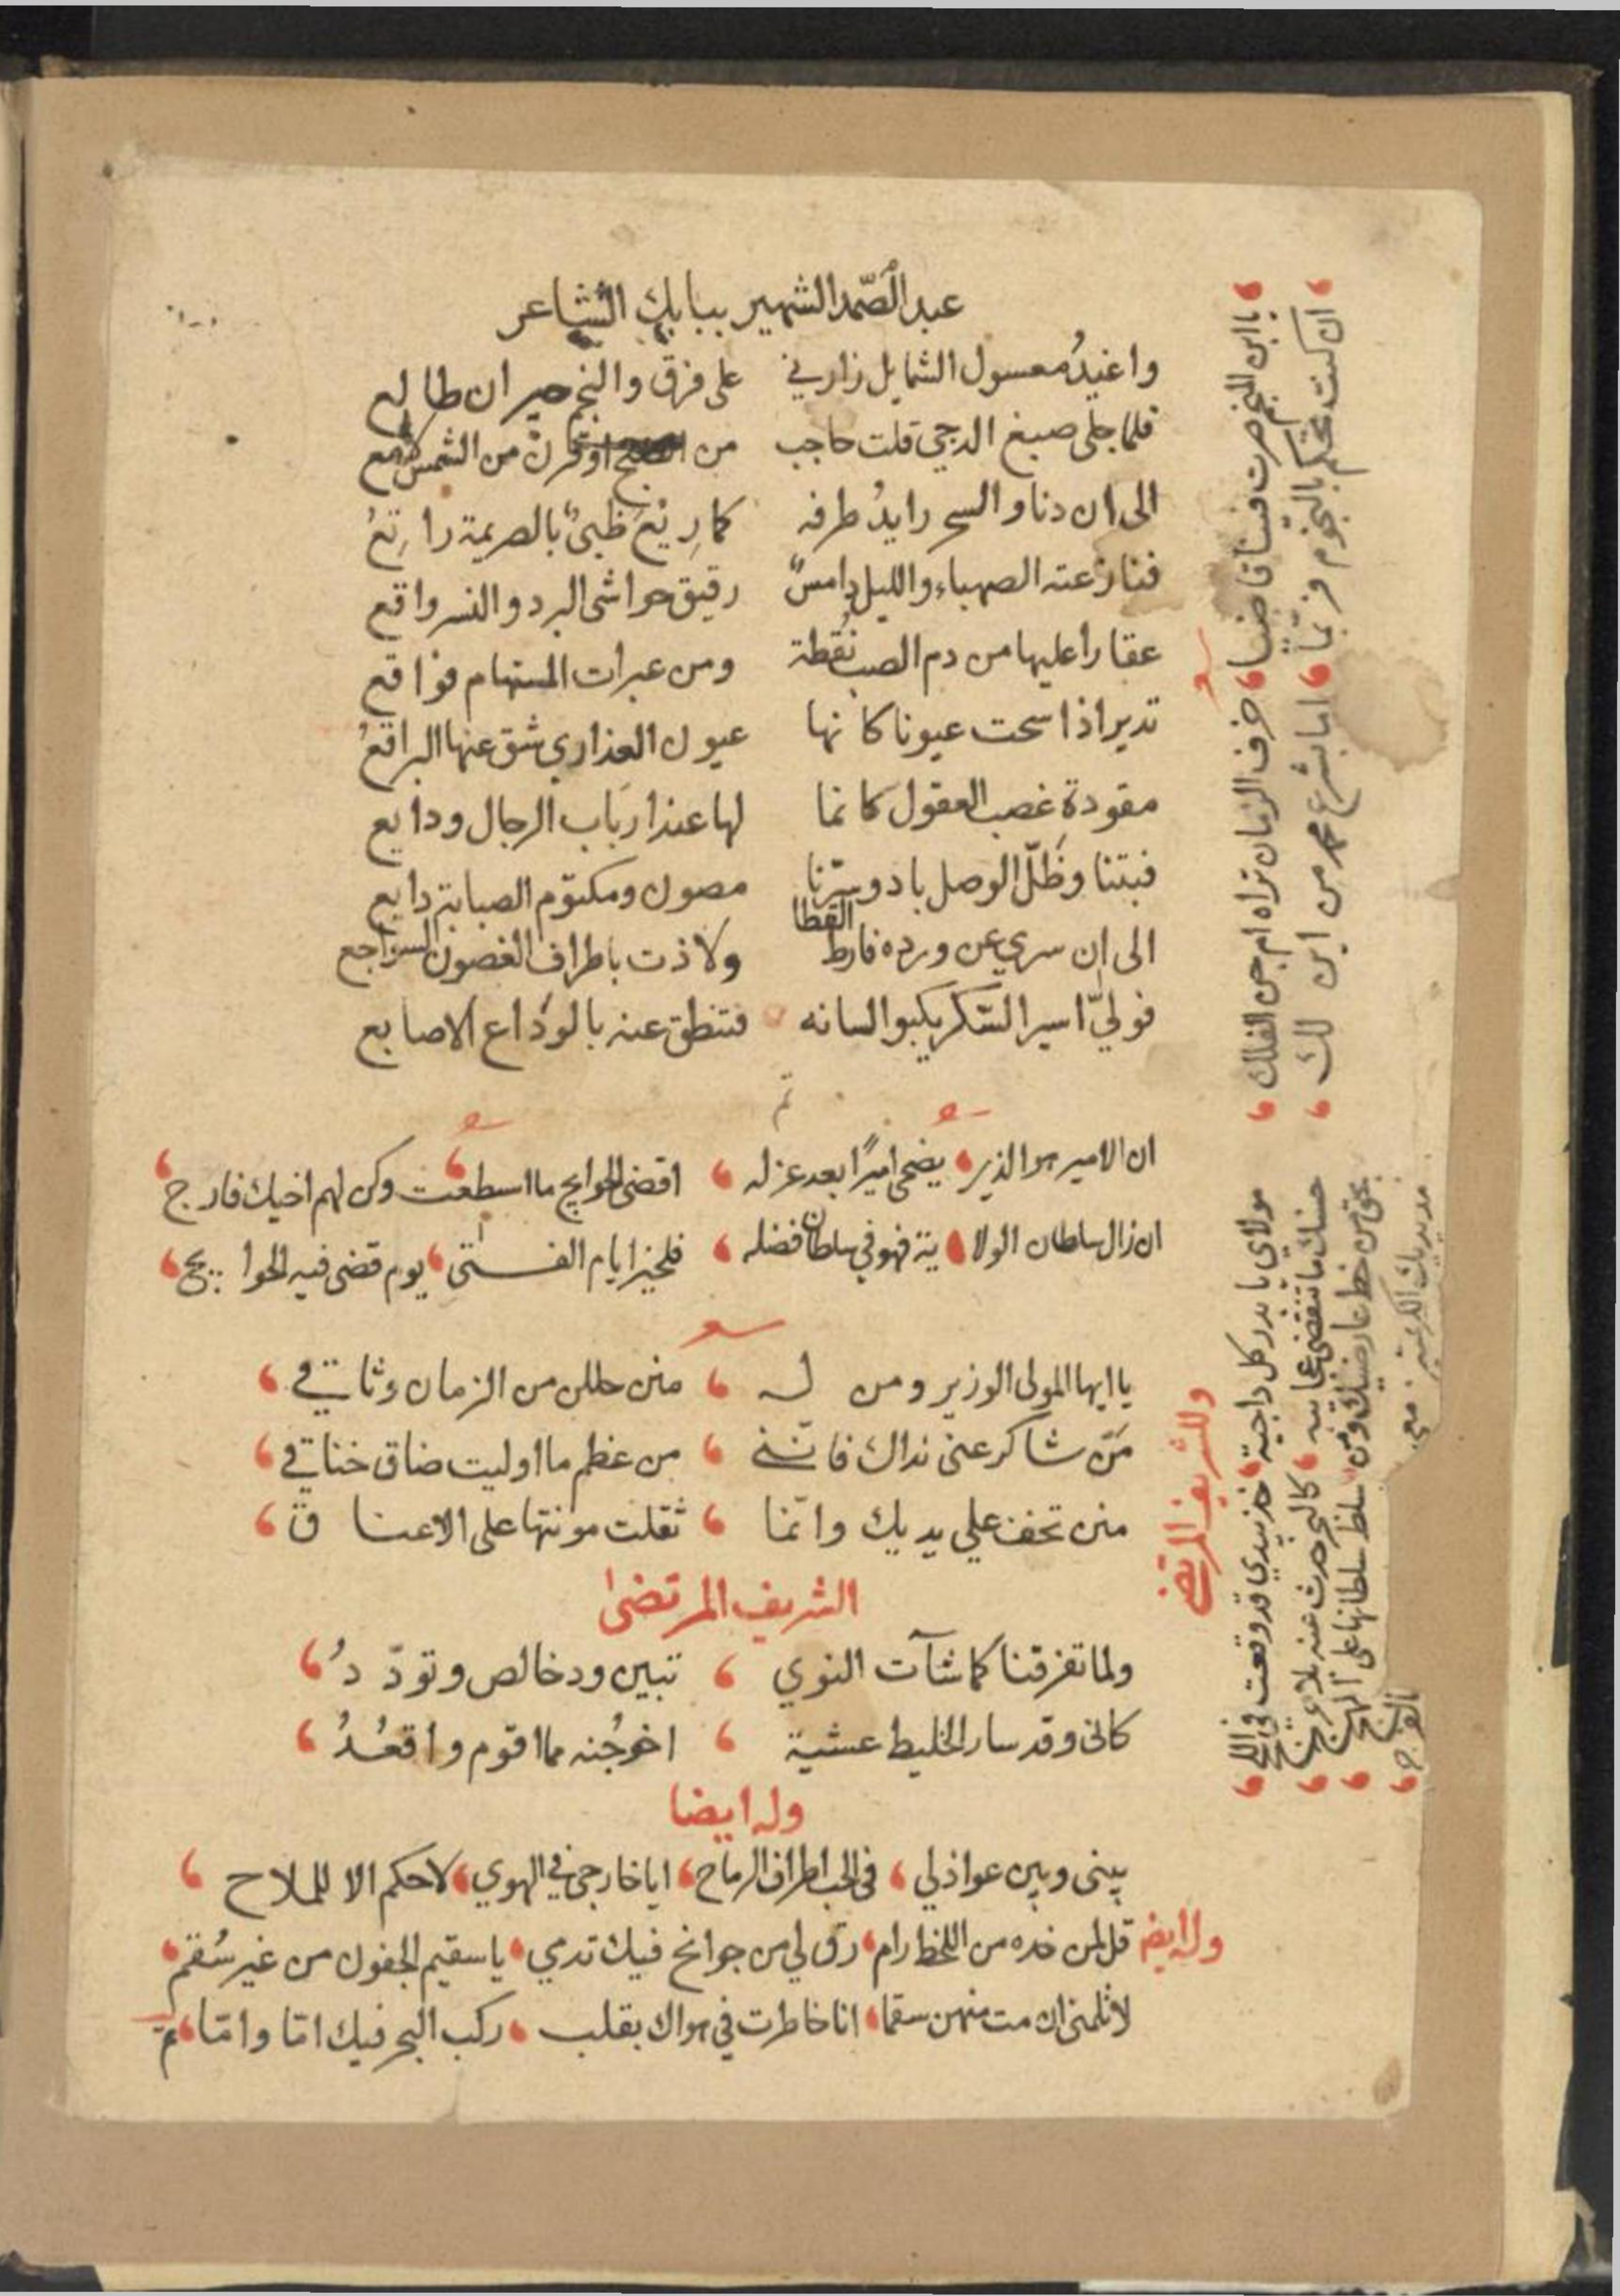 عبد الصّمد الشهير ببابك الشاعر
واغيدُ معسول الشمايل زارني على فرق والنجم حيران طالع
فلما جلى صبغ الدجي قلت حاجب من الصبح او قرن من الشمس لامع
الى ان دنا والسحر رايدُ طرفه كما رِيْعَ ظبىٌ بالصريمة راتِعُ
فنازعته الصهباء والليل دامسٌ رقيق حواشى البرد والنسر واقع
عقارا عليها من دم الصب نُقطة ومن عبرات المستهام فواقع
تدير اذا سحت عيونا كانها عيون العذاري شق عنها البراقعُ
مقودة غصب العقول كانما لها عند ارباب الرجال ودايع
فبتنا وظَلّ الوصل باد وسرّنا مصون ومكتوم الصبابة دايع
الى ان سري عن ورده فارط القطا ولاذت باطراف الغصون السواجع
فوليّ اسير السّكر يكبوا لسانه فتنطق عنه بالوداع الاصابع
تم
ان الامير هو الذير يضحى اميرًا بعد عزله اقضى الحوايج ما اسطعت وكن لهم اخيك فارج
ان زال سلطان الولاية فهو في سلطان فضله فلخير ايام الفتى يوم قضى فيه الحوايج
يا ايها المولى الوزير ومن له منن حللن من الزمان وثاقي
مَنّ شاكر عنى نداك فانّنى من عظم ما اوليت ضاق خناقي
منن تخف علي يديك وانّما ثقلت مونتها على الاعناق
الشريف المرتضى
ولما تفرقنا كما شآت النوي تبين ود خالص وتودّدُ
كانى وقد سار الخليط عشية اخو جُنه مما اقوم واقعُدُ
وله ايضا
بينى وبين عواذلي في الحب اطراف الرماح ايا خارجى في الهوي لا حكم الا للملاح
وله ايض قل لمن خده من اللحظ رام رق لي من جوانح فيك تدمي يا سقيم الجفون من غير سُقم
لا تلمنى ان مت منهن سقما انا خاطرت في هواك بقلب ركب البحر فيك امّا وامّا تم
يا ابن المنجم صرت فينا قاضيا خرف الزمان تراه ام جن الفلك
ان كنت تحكم بالنجوم فربّما اما بشرع محمد من اين لك
وللشريف المرتضى
مولاي يا بدر كل داجية خذ بيدي قد وقعت في اللجج
حسنك ما تنقضى عجايبه كالبحر حدث عنه بلا حرج
بحق من خط عارضيك ومن سلط سلطانها على المهج
مد يديك الكريمتين معي